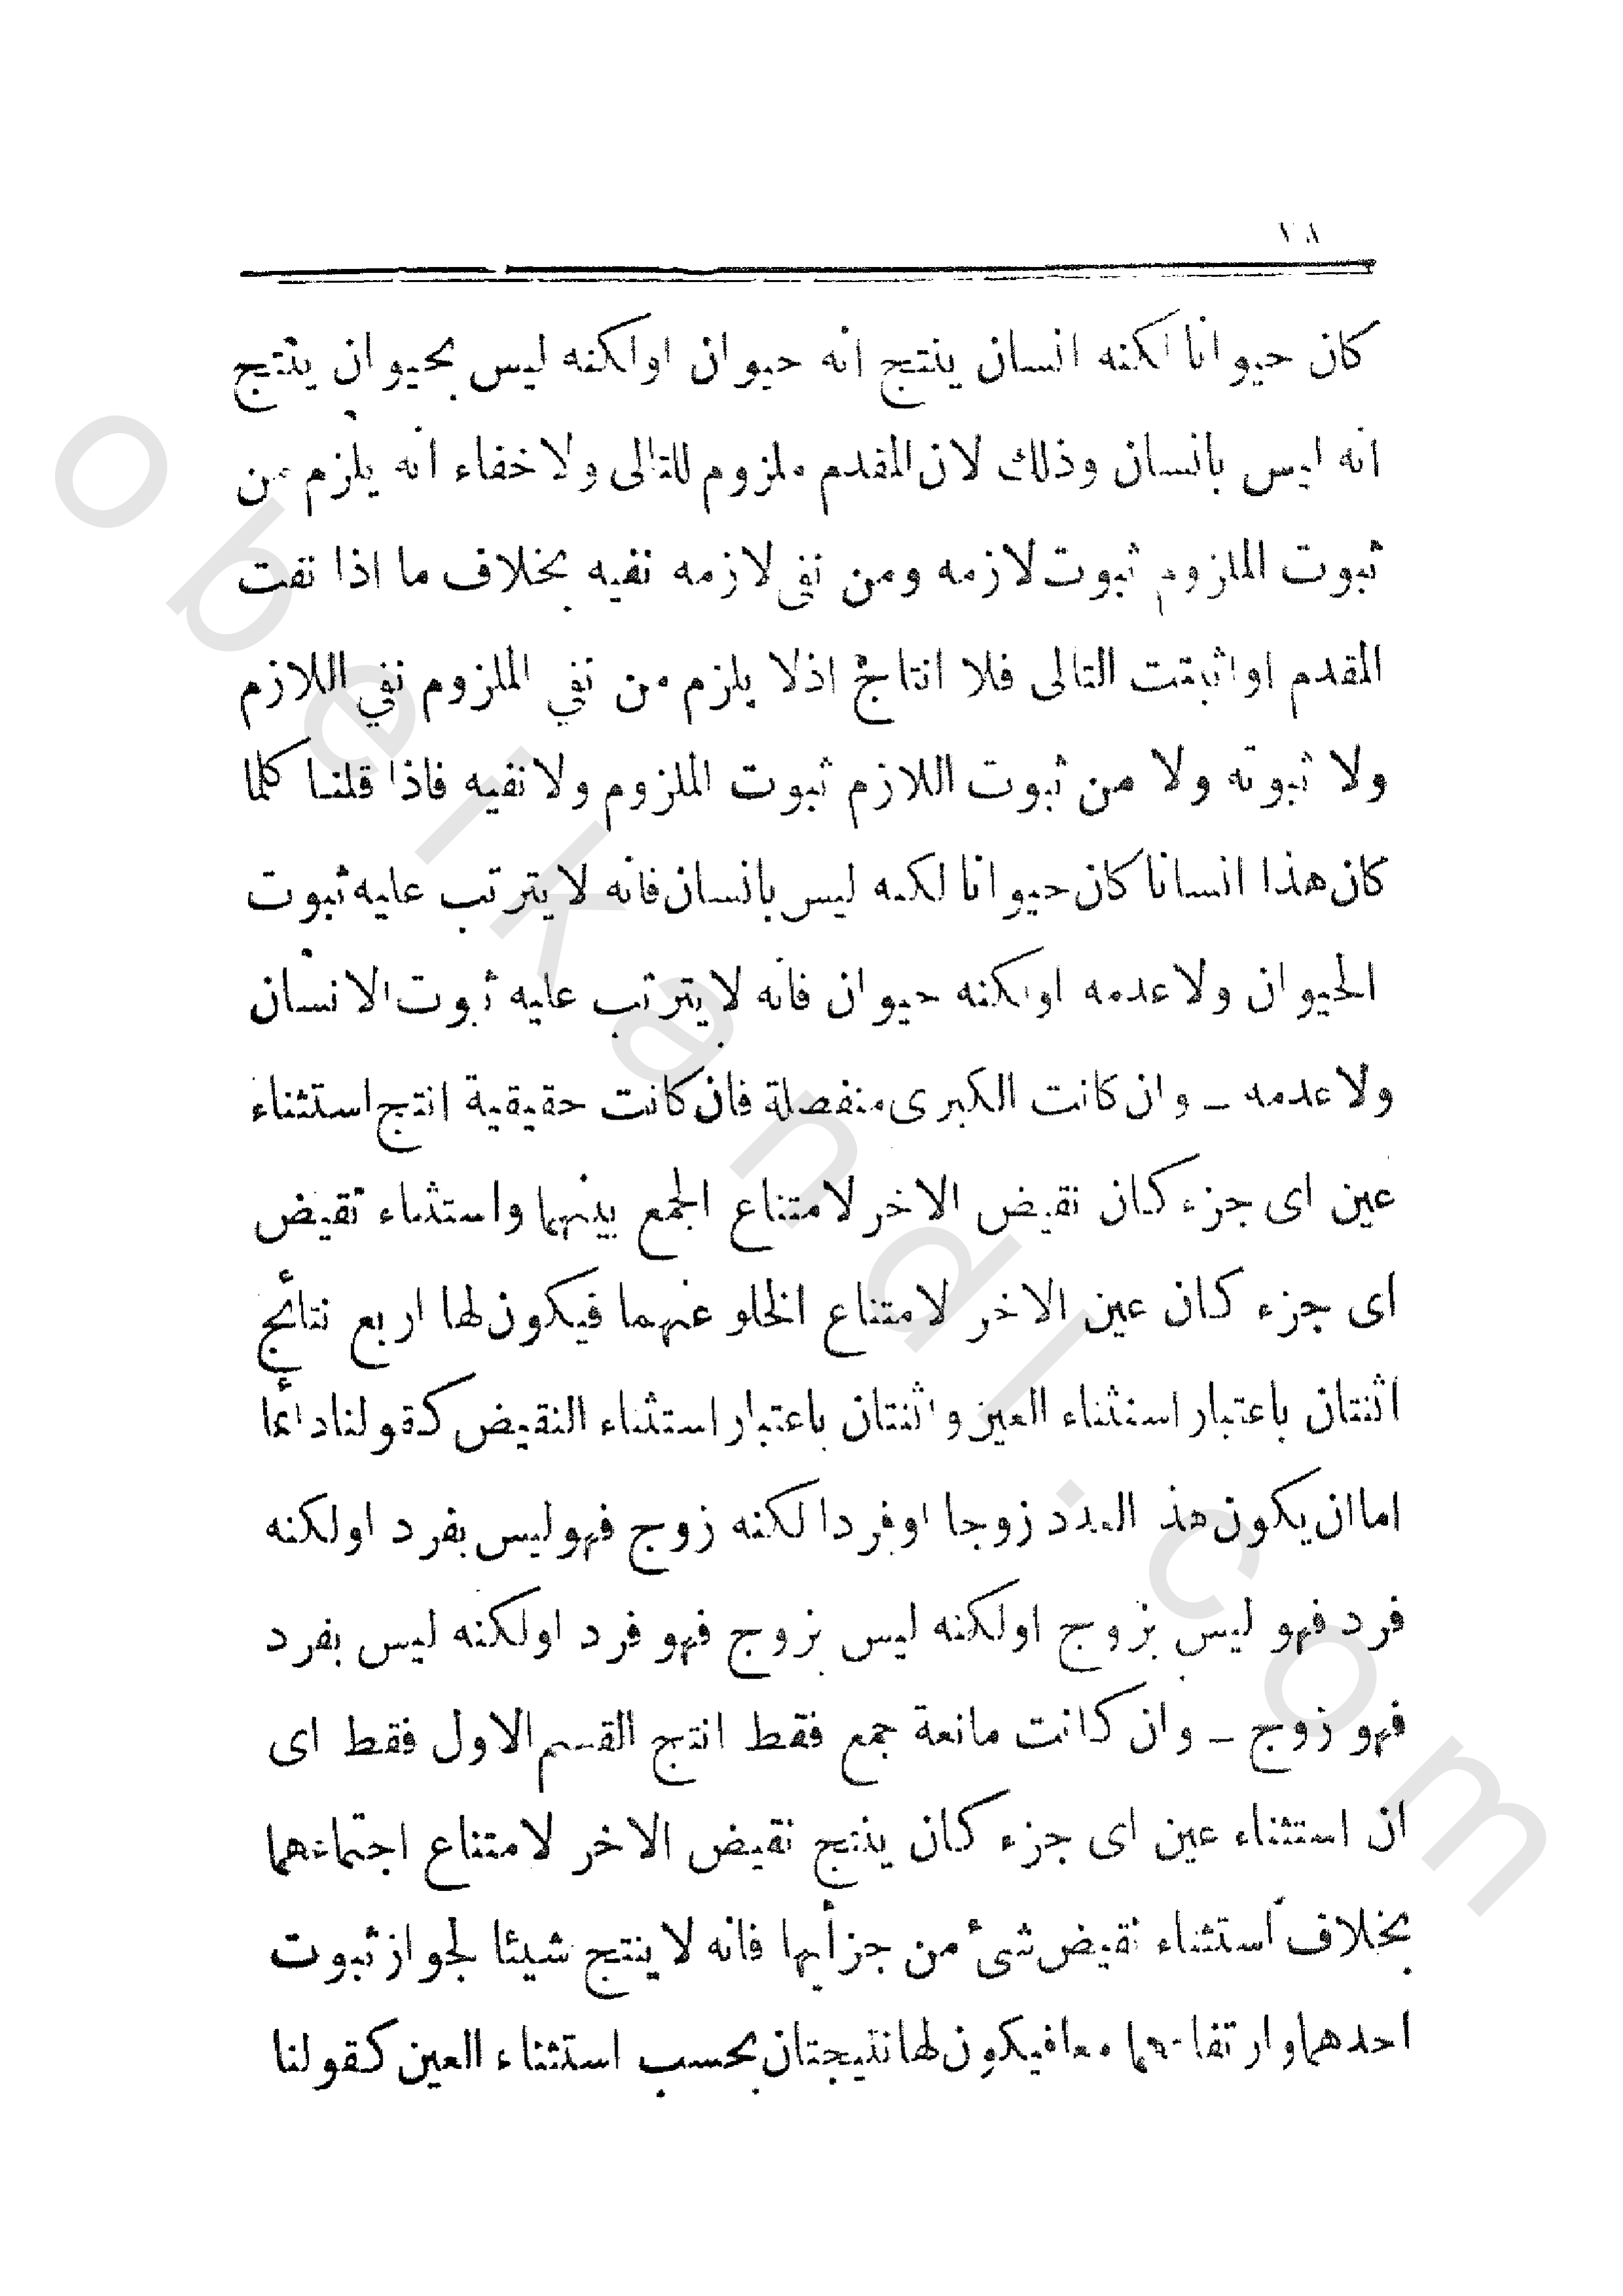 كان حيوانا لكنه انسان ينتج انه حيوان اولكنه ليس بحيوان ينتج
انه ليس بانسان وذلك لان المقدم ملزوم للتالى ولا خفاء انه يلزم من
ثبوت الملزوم ثبوت لازمه ومن نفى لازمه نفيه بخلاف ما اذا نفت
المقدم او اثبتت التالى فلا انتاج اذلا يلزم من نفي الملزوم نفي اللازم
ولا ثبوته ولا من ثبوت اللازم ثبوت الملزوم ولا نفيه فاذا قلنا كلما
كان هذا انسانا كان حيوانا لكنه ليس بانسان فانه لا يترتب عليه ثبوت
الحيوان ولا عدمه اولكنه حيوان فانه لا يترتب عليه ثبوت الانسان
ولا عدمه ـ وان كانت الكبرى منفصلة فان كانت حقيقية انتج استثناء
عين اى جزء كان نقيض الاخر لامتناع الجمع بينهما واستثناء نقيض
اى جزء كان عين الاخر لامتناع الخلو عنهما فيكون لها اربع نتائج
اثنتان باعتبار استثناء العين واثنتان باعتبار استثناء النقيض كقولنا دائما
اما ان يكون هذ العدد زوجا اوفردا لكنه زوج فهو ليس بفرد اولكنه
فرد فهو ليس بزوج اولكنه ليس بزوج فهو فرد اولكنه ليس بفرد
فهو زوج ـ وان كانت مانعة جمع فقط انتج القسم الاول فقط اى
ان استثناء عين اى جزء كان ينتج نقيض الاخر لامتناع اجتماعهما
بخلاف استثناء نقيض شئ من جزأيها فانه لا ينتج شيئا لجواز ثبوت
احدهما وارتفاعهما معا فيكون لها نتيجتان بحسب استثناء العين كقولنا
obeikandl.com